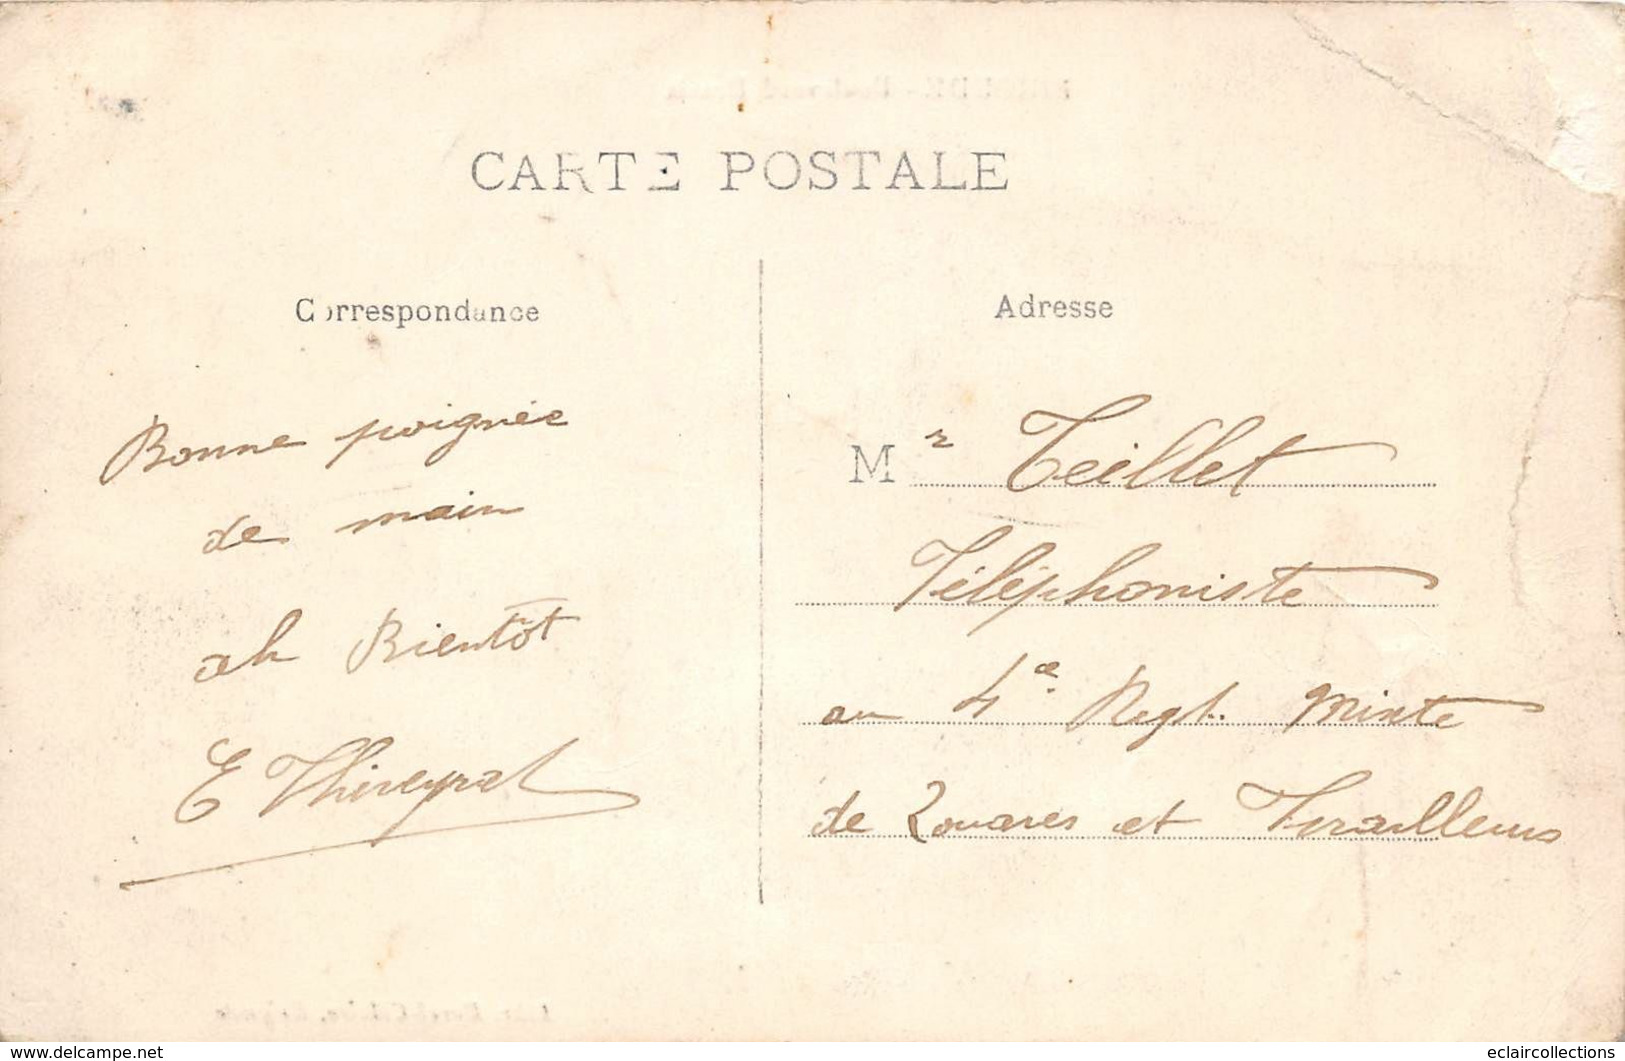 CARTE POSTALE
Correspondance
Adresse
Bonne poignée
de main
ah Bientôt
E Thireyrat
Mr Teillet
Téléphoniste
au 4e Regt. Mixte
de Zouaves et Tirailleurs
www.delcampe.net
eclaircollections